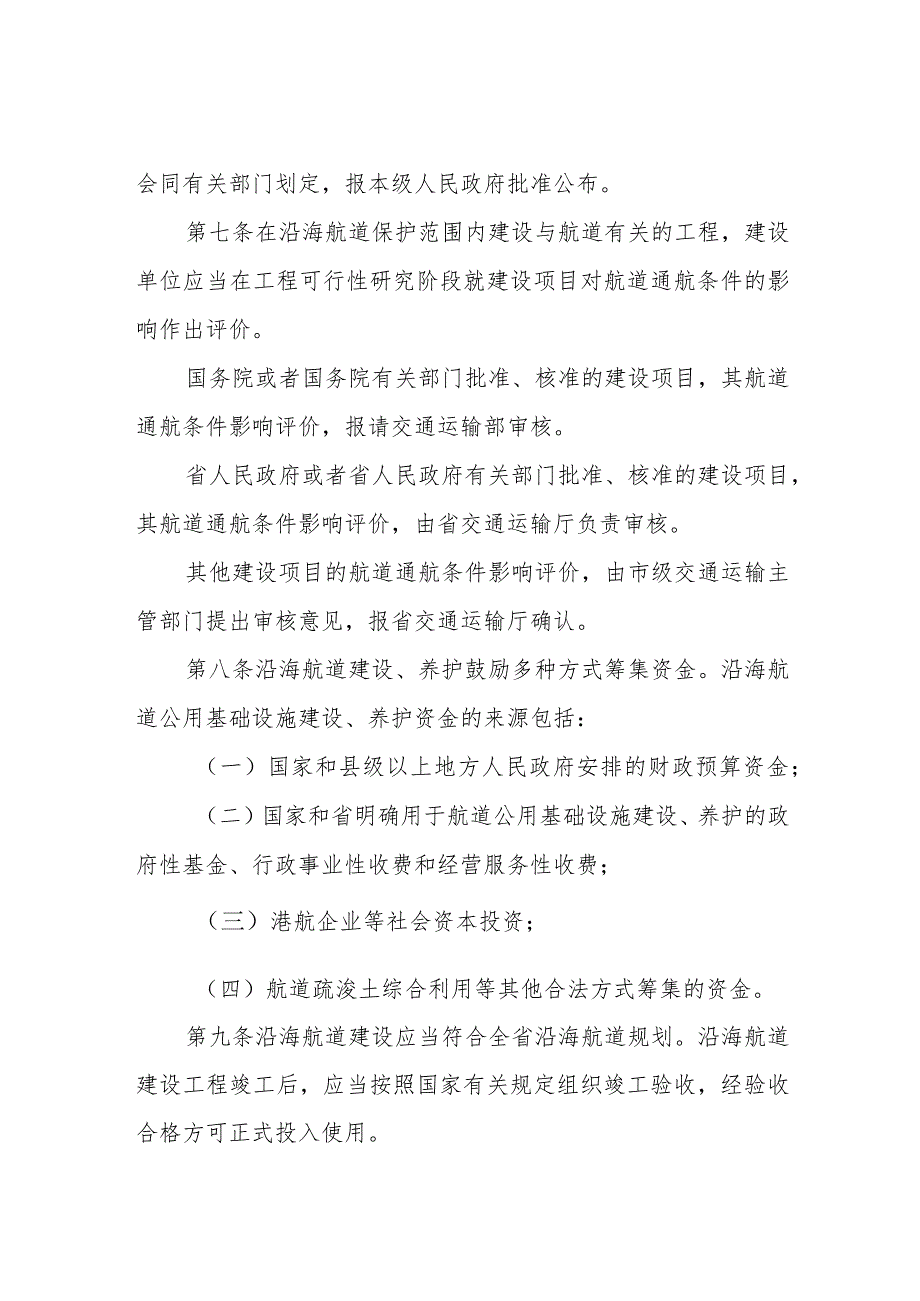 会同有关部门划定，报本级人民政府批准公布。
第七条在沿海航道保护范围内建设与航道有关的工程，建设
单位应当在工程可行性研究阶段就建设项目对航道通航条件的影
响作出评价。
国务院或者国务院有关部门批准、核准的建设项目，其航道
通航条件影响评价，报请交通运输部审核。
省人民政府或者省人民政府有关部门批准、核准的建设项目，
其航道通航条件影响评价，由省交通运输厅负责审核。
其他建设项目的航道通航条件影响评价，由市级交通运输主
管部门提出审核意见，报省交通运输厅确认。
第八条沿海航道建设、养护鼓励多种方式筹集资金。沿海航
道公用基础设施建设、养护资金的来源包括：
（一）国家和县级以上地方人民政府安排的财政预算资金；
（二）国家和省明确用于航道公用基础设施建设、养护的政
府性基金、行政事业性收费和经营服务性收费；
（三）港航企业等社会资本投资；
（四）航道疏浚土综合利用等其他合法方式筹集的资金。
第九条沿海航道建设应当符合全省沿海航道规划。沿海航道
建设工程竣工后，应当按照国家有关规定组织竣工验收，经验收
合格方可正式投入使用。